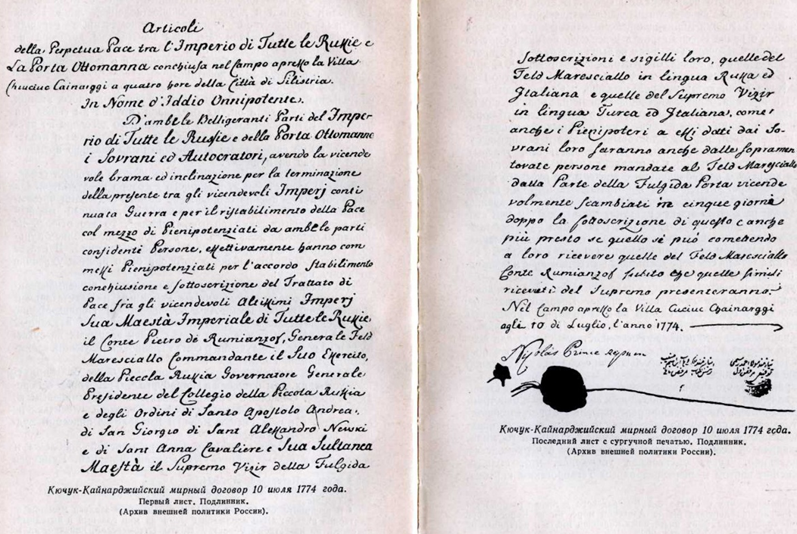 Articoli
della Perpetua Pace tra l'Imperio di Tutte le Russie e
La Porta Ottomanna conchiusa nel Campo apresso la Villa
Chuciuc Cainarggi a quatro hore della Città di Silistria.
In Nome d'Iddio Onnipotente.
D'ambe le Belligeranti Parti del Impe-
rio di Tutte le Russie e della Porta Ottomanna
i Sovrani ed Autocratori, avendo la vicende
vole brama ed inclinazione per la terminazione
della presente tra gli vicendevoli Imperj conti
nuata Guerra e per il ristabilimento della Pace
col mezzo di Pienipotenziati da ambe le parti
considenti Persone, effettivamente hanno com
messi Pienipotenziati per l'accordo stabilimento
conchiusione e sottoscrizione del Trattato di
Pace fra gli vicendevoli Altissimi Imperj
Sua Maestà Imperiale di Tutte le Russie,
il Conte Pietro de Rumianzof, Generale Feld
Maresciallo Commandante il Suo Esercito,
della Piccola Russia Governatore Generale
Presidente del Collegio della Piccola Russia
e degli Ordini di Santo Apostolo Andrea,
di San Giorgio di Sant Alessandro Newski
e di Sant Anna Cavaliere e Sua Sultanea
Maestà il Supremo Vizir della Fulgida
Кючук-Кайнарджийский мирный договор 10 июля 1774 года.
Первый лист. Подлинник.
(Архив внешней политики России).
Sottoscrizioni e sigilli loro, quelle del
Feld Maresciallo in lingua Russa ed
Italiana e quelle del Supremo Vizir
in lingua Turca ed Italiana, come
anche i Pienipoteri a essi dotti dai So-
vrani loro saranno anche dalle sopramen
tovate persone mandate al Feld Maresciallo
dalla Parte della Fulgida Porta vicende
volmente scambiati in cinque giorni
doppo la sottoscrizione di questo e anche
più presto se quello si può comettendo
a loro ricevere quelle del Feld Maresciallo
Conte Rumianzof subito che quelle simili
riceveti del Supremo presenteranno.
Nel Campo apresso la Villa Cuciuc Chainarggi
agli 10 di Luglio, l'anno 1774.
Nicolas Prince
Кючук-Кайнарджийский мирный договор 10 июля 1774 года.
Последний лист с сургучной печатью. Подлинник.
(Архив внешней политики России).